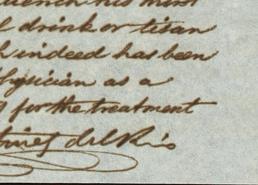 quench his thirst
drink or titan
indeed has been
physician as a
for the treatment
del Rio